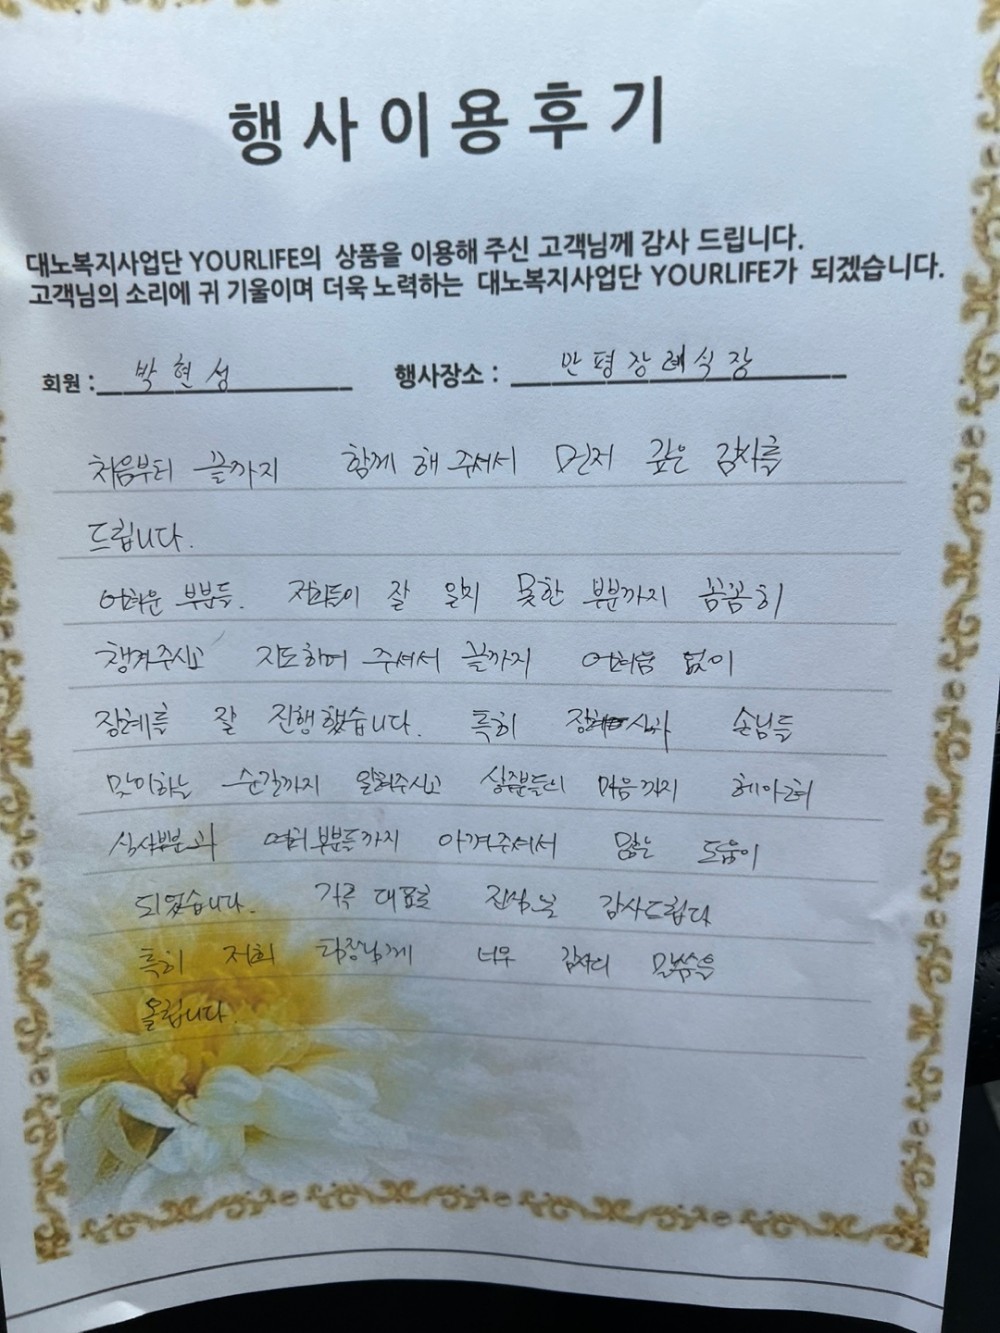 행사이용후기
대노복지사업단 YOURLIFE의 상품을 이용해 주신 고객님께 감사 드립니다.
고객님의 소리에 귀 기울이며 더욱 노력하는 대노복지사업단 YOURLIFE가 되겠습니다.
회원 : 박현성 행사장소 : 만평장례식장
처음부터 끝까지 함께 해 주셔서 먼저 깊은 감사를
드립니다.
어려운 부분들. 저희들이 잘 알지 못한 부분까지 꼼꼼히
챙겨주시고 지도하여 주셔서 끝까지 어려움 없이
장례를 잘 진행했습니다. 특히 손님들
맞이하는 순간까지 알려주시고 상주분들의 마음까지 헤아려
여러부분들까지 아껴주셔서 많은 도움이
되었습니다. 가족 대표로 감사드립다
특히 저희 팀장님께 너무 감사의 말씀을
올립니다.